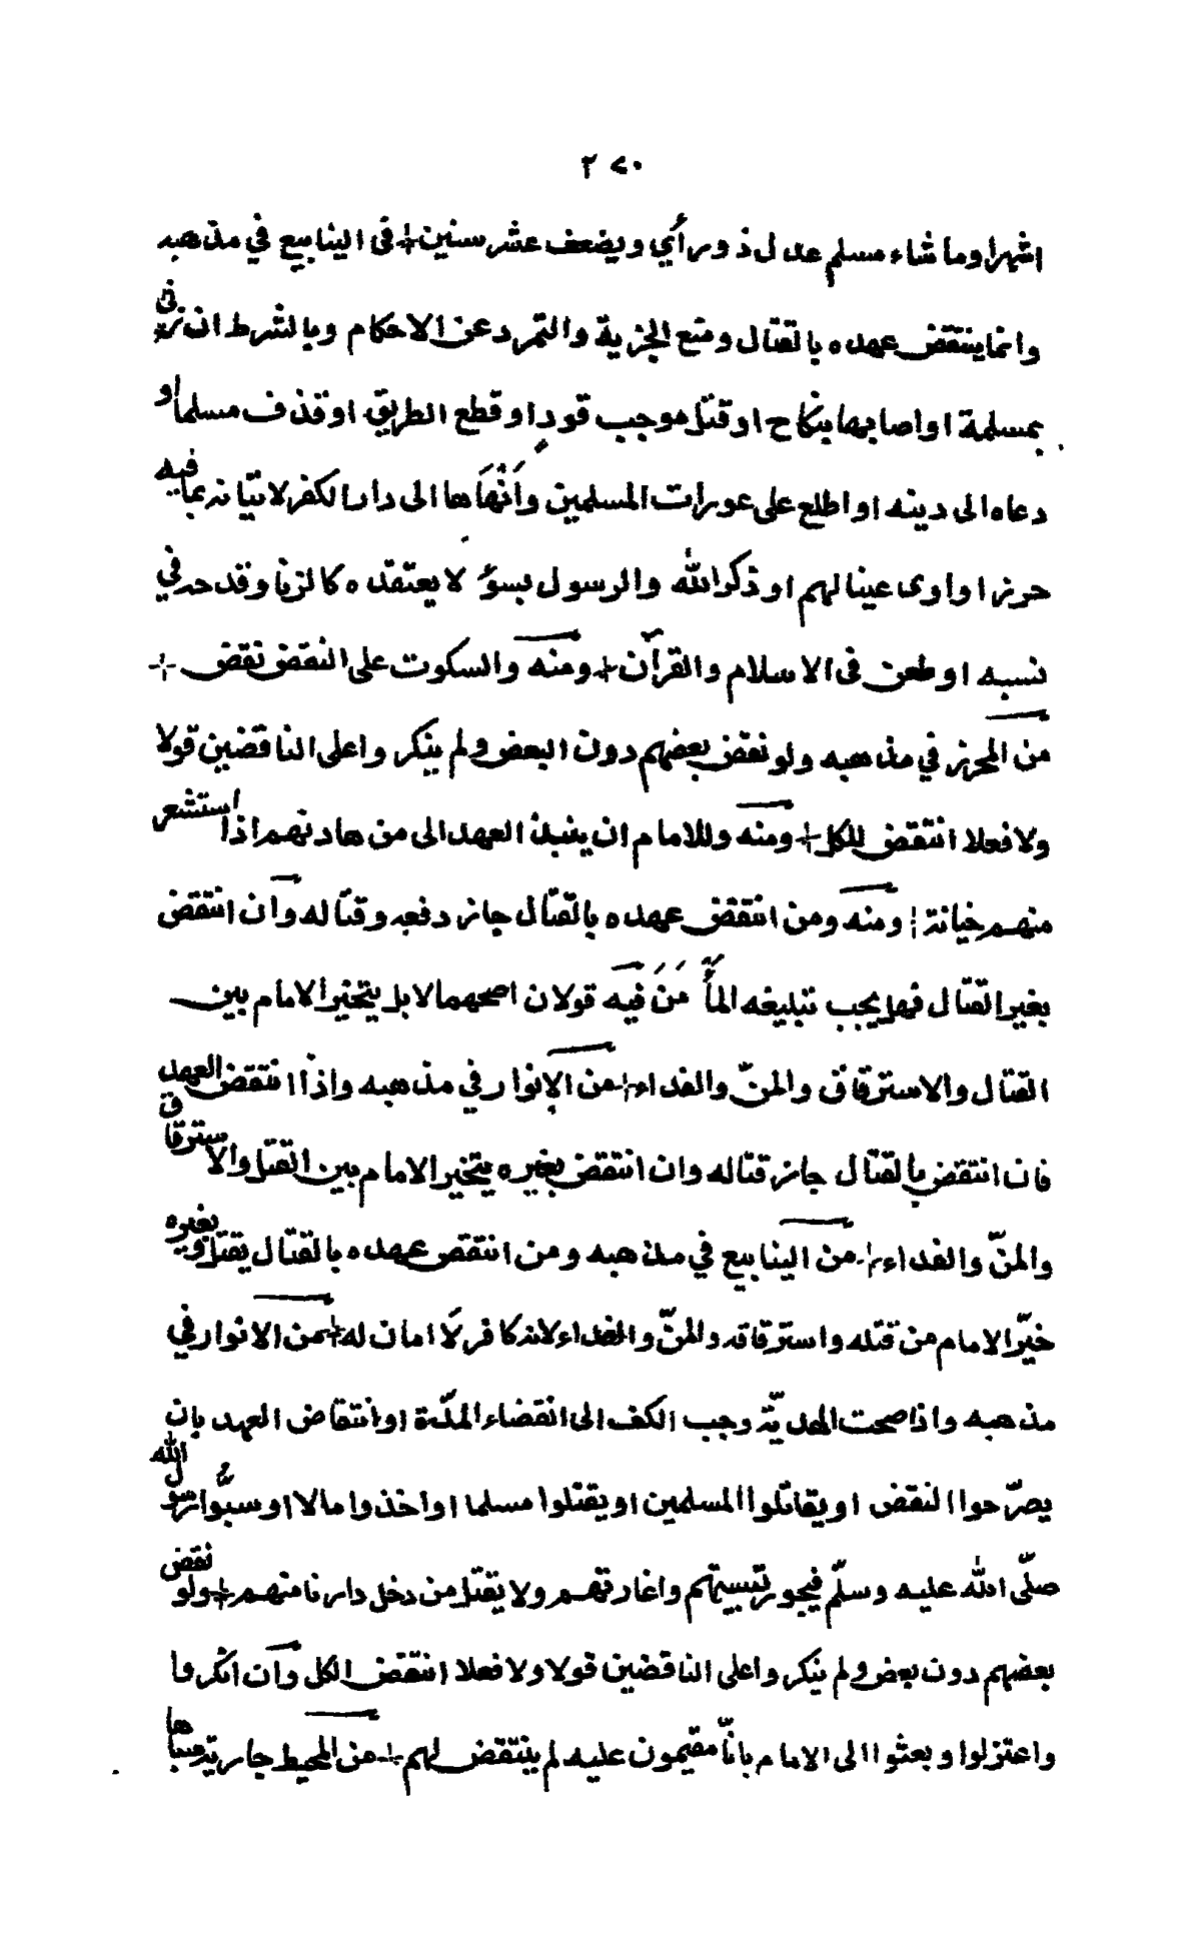 ٢٧٠
اشهرا وما شاء مسلم عدل ذو رأي ويضعف عشر سنين + في الينابيع في مذهبه
وانما ينتقض عهده بالقتال ومنع الجزية والتمرد عن الاحكام وبالشرط ان زنى
بمسلمة او اصابها بنكاح او قتل موجب قود او قطع الطريق او قذف مسلما او
دعاه الى دينه او اطلع على عورات المسلمين وأنهاها الى دار الكفر لا تيانه بما فيه
حرز او اوى عينا لهم او ذكر الله والرسول بسوء لا يعتقده كالزنا وقدحه في
نسبه او طعن في الاسلام والقرآن + ومنه والسكوت على النقض نقض +
من المحرر في مذهبه ولو نقض بعضهم دون البعض ولم ينكروا على الناقضين قولا
ولا فعلا انتقض للكل + ومنه وللامام ان ينبذ العهد الى من هادنهم اذا استشعر
منهم خيانة + ومنه ومن انتقض عهده بالقتال جاز دفعه وقتاله وان انتقض
بغير القتال فهل يجب تبليغه المأمن فيه قولان اصحهما لا بل يتخير الامام بين
القتال والاسترقاق والمنّ والفداء + من الانوار في مذهبه واذا انتقض العهد
فان انتقض بالقتال جاز قتاله وان انتقض بغيره يتخير الامام بين القتل والاسترقاق
والمنّ والفداء + من الينابيع في مذهبه ومن انتقض عهده بالقتال يقتل وبغيره
خيّر الامام من قتله واسترقاقه والمنّ والفداء لانه كافر لا امان له + من الانوار في
مذهبه واذا صحت الهديّة وجب الكف الى انقضاء المدّة او انتقاض العهد بان
يصرّحوا النقض او يقاتلوا المسلمين او يقتلوا مسلما او اخذوا مالا او سبّوا رسول الله
صلّى الله عليه وسلّم فيجوز تبييتهم واغارتهم ولا يقتل من دخل دارنا منهم + ولو نقض
بعضهم دون بعض ولم ينكروا على الناقضين قولا ولا فعلا انتقض الكل وان انكروا
واعتزلوا وبعثوا الى الامام بانّا مقيمون عليه لم ينتقض لهم + من المحيط جارية سباها